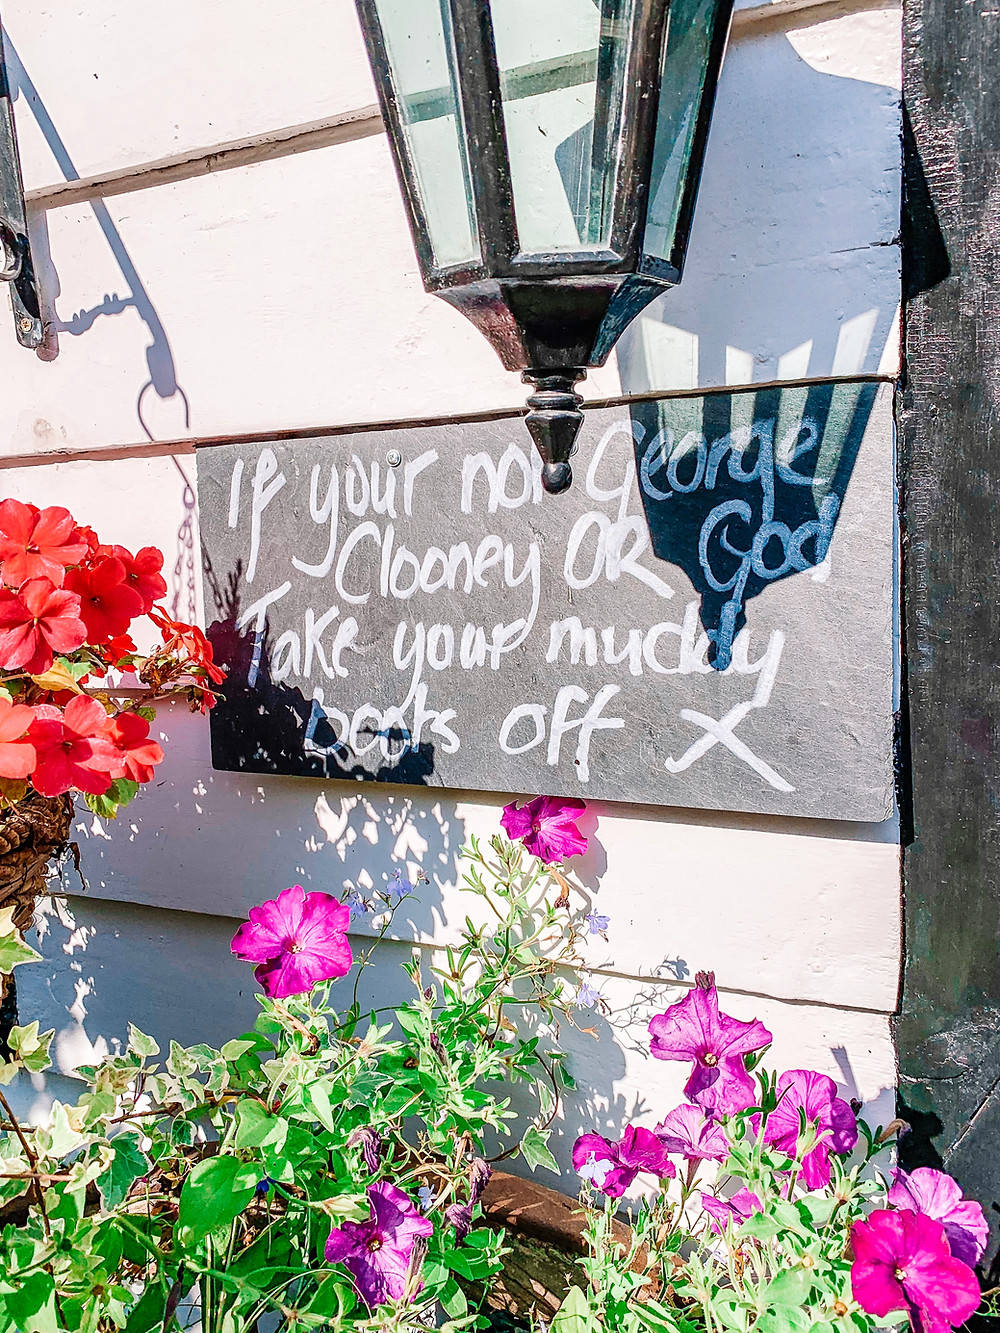 If your not George
Clooney OR God
Take your muddy
boots off X